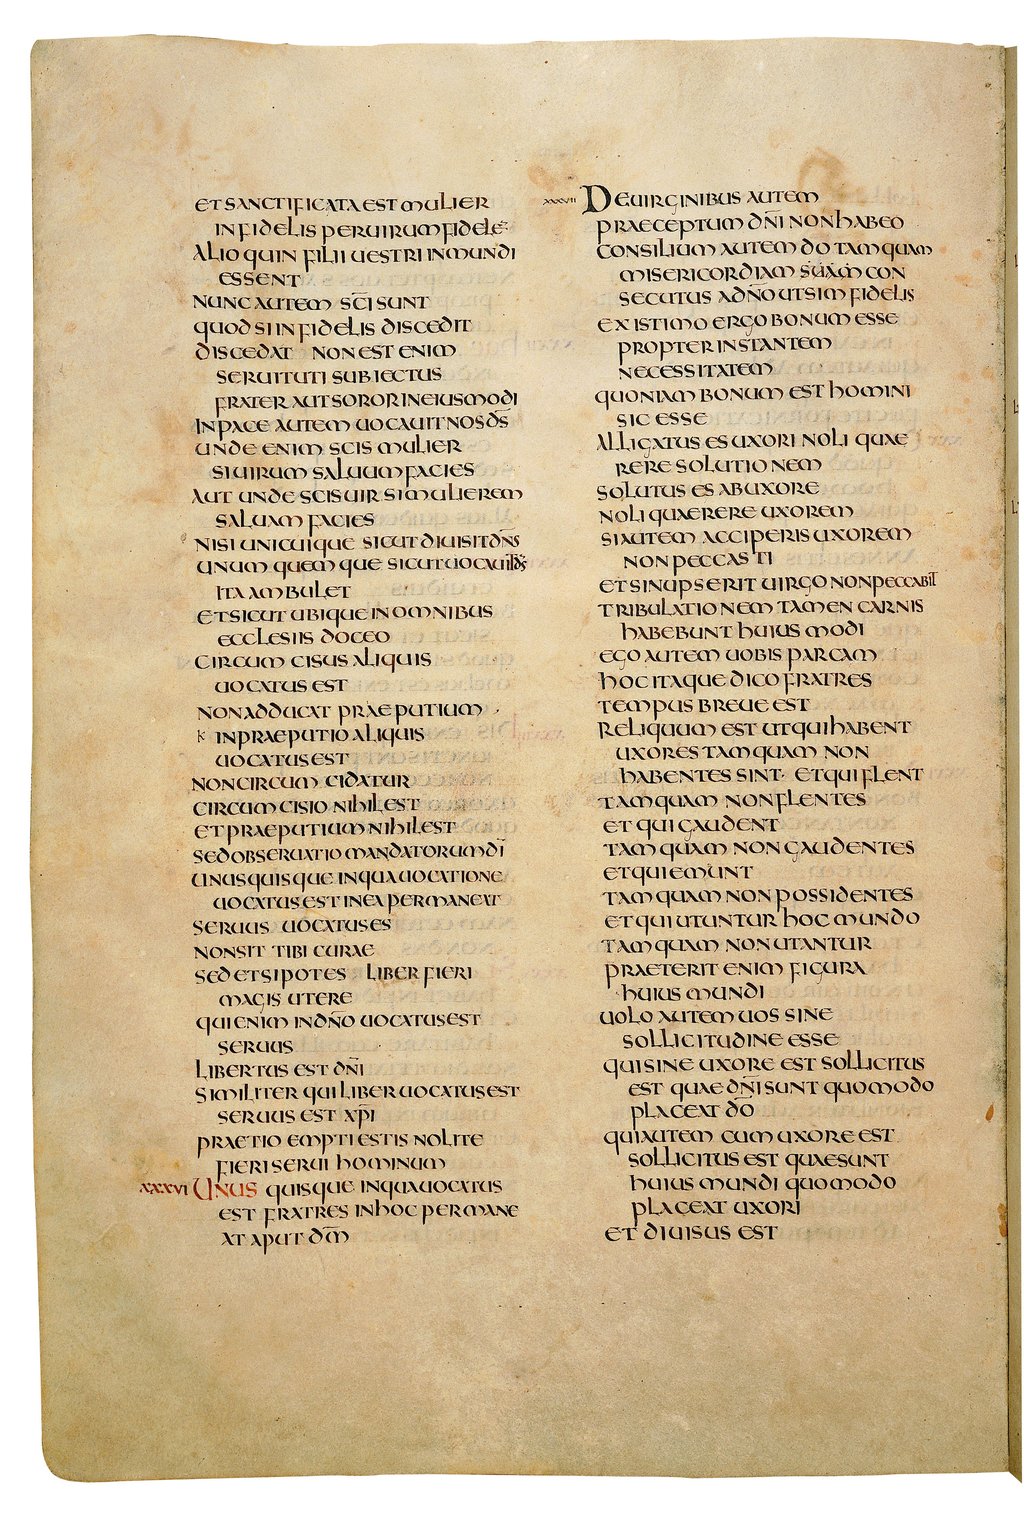 ET SANCTIFICATA EST MULIER
INFIDELIS PER UIRUM FIDELE
ALIOQUIN FILII UESTRI INMUNDI
ESSENT
NUNC AUTEM SC̄I SUNT
QUOD SI INFIDELIS DISCEDIT
DISCEDAT NON EST ENIM
SERUITUTI SUBIECTUS
FRATER AUT SOROR IN EIUSMODI
IN PACE AUTEM UOCAUIT NOS D̄S
UNDE ENIM SCIS MULIER
SI UIRUM SALUUM FACIES
AUT UNDE SCIS UIR SI MULIEREM
SALUAM FACIES
NISI UNICUIQUE SICUT DIUISIT DN̄S
UNUM QUEMQUE SICUT UOCAUIT D̄S
ITA AMBULET
ET SICUT UBIQUE IN OMNIBUS
ECCLESIIS DOCEO
CIRCUMCISUS ALIQUIS
UOCATUS EST
NON ADDUCAT PRAEPUTIUM
IN PRAEPUTIO ALIQUIS
UOCATUS EST
NON CIRCUMCIDATUR
CIRCUMCISIO NIHIL EST
ET PRAEPUTIUM NIHIL EST
SED OBSERUATIO MANDATORUM DĪ
UNUSQUISQUE IN QUA UOCATIONE
UOCATUS EST IN EA PERMANEAT
SERUUS UOCATUS ES
NON SIT TIBI CURAE
SED ET SI POTES LIBER FIERI
MAGIS UTERE
QUI ENIM IN DN̄O UOCATUS EST
SERUUS
LIBERTUS EST DN̄I
SIMILITER QUI LIBER UOCATUS EST
SERUUS EST XP̄I
PRAETIO EMPTI ESTIS NOLITE
FIERI SERUI HOMINUM
XXXVI UNUSQUISQUE IN QUA UOCATUS
EST FRATRES IN HOC PERMANE
AT APUT DM̄
XXXVII DE UIRGINIBUS AUTEM
PRAECEPTUM DN̄I NON HABEO
CONSILIUM AUTEM DO TAMQUAM
MISERICORDIAM SUAM CON
SECUTUS A DN̄O UT SIM FIDELIS
EXISTIMO ERGO BONUM ESSE
PROPTER INSTANTEM
NECESSITATEM
QUONIAM BONUM EST HOMINI
SIC ESSE
ALLIGATUS ES UXORI NOLI QUAE
RERE SOLUTIONEM
SOLUTUS ES AB UXORE
NOLI QUAERERE UXOREM
SI AUTEM ACCIPERIS UXOREM
NON PECCASTI
ET SI NUPSERIT UIRGO NON PECCABIT
TRIBULATIONEM TAMEN CARNIS
HABEBUNT HUIUSMODI
EGO AUTEM UOBIS PARCAM
HOC ITAQUE DICO FRATRES
TEMPUS BREUE EST
RELIQUUM EST UT QUI HABENT
UXORES TAMQUAM NON
HABENTES SINT· ET QUI FLENT
TAMQUAM NON FLENTES
ET QUI GAUDENT
TAMQUAM NON GAUDENTES
ET QUI EMUNT
TAMQUAM NON POSSIDENTES
ET QUI UTUNTUR HOC MUNDO
TAMQUAM NON UTANTUR
PRAETERIT ENIM FIGURA
HUIUS MUNDI
UOLO AUTEM UOS SINE
SOLLICITUDINE ESSE
QUI SINE UXORE EST SOLLICITUS
EST QUAE DN̄I SUNT QUOMODO
PLACEAT DŌ
QUI AUTEM CUM UXORE EST
SOLLICITUS EST QUAE SUNT
HUIUS MUNDI QUOMODO
PLACEAT UXORI
ET DIUISUS EST